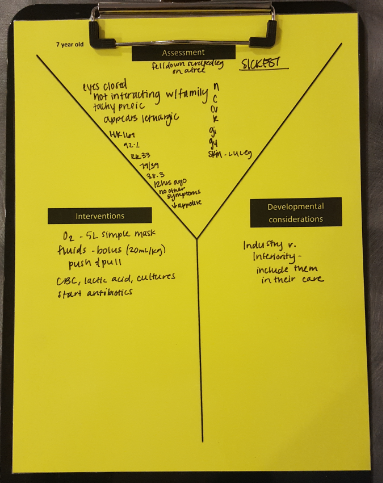 7 year old
Assessment
fell down
on a tree
SICKEST
eyes closed
not interacting w/family
tachypneic
appears lethargic
n
c
cv
r
gi
gu
skin - L leg
92%
RR 33
79/39
38.3
12 hrs ago
no other
symptoms
↓ appetite
Interventions
O2 - 5L simple mask
fluids - bolus (20mL/kg)
push & pull
CBC, lactic acid, cultures
start antibiotics
Developmental
considerations
Industry v.
Inferiority -
include them
in their care